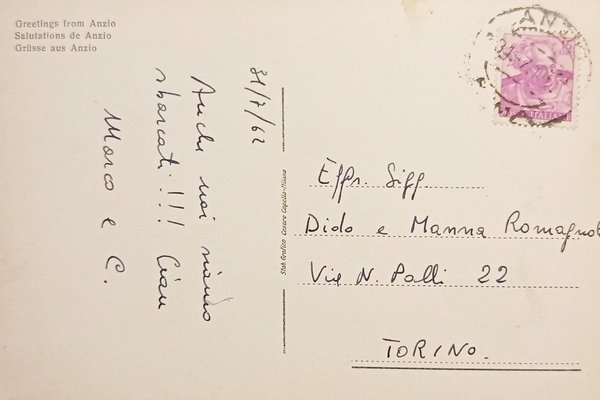 Greetings from Anzio
Salutations de Anzio
Grüsse aus Anzio
31/7/62
Anche noi siamo
sbarcati!!! Ciau
Marco e C.
Stab. Grafico Cesare Capello - Milano
ANZIO
ITALIANE
Effr. Sigg.
Dido e Manna Romagnol
Via N. Palli 22
TORINO.